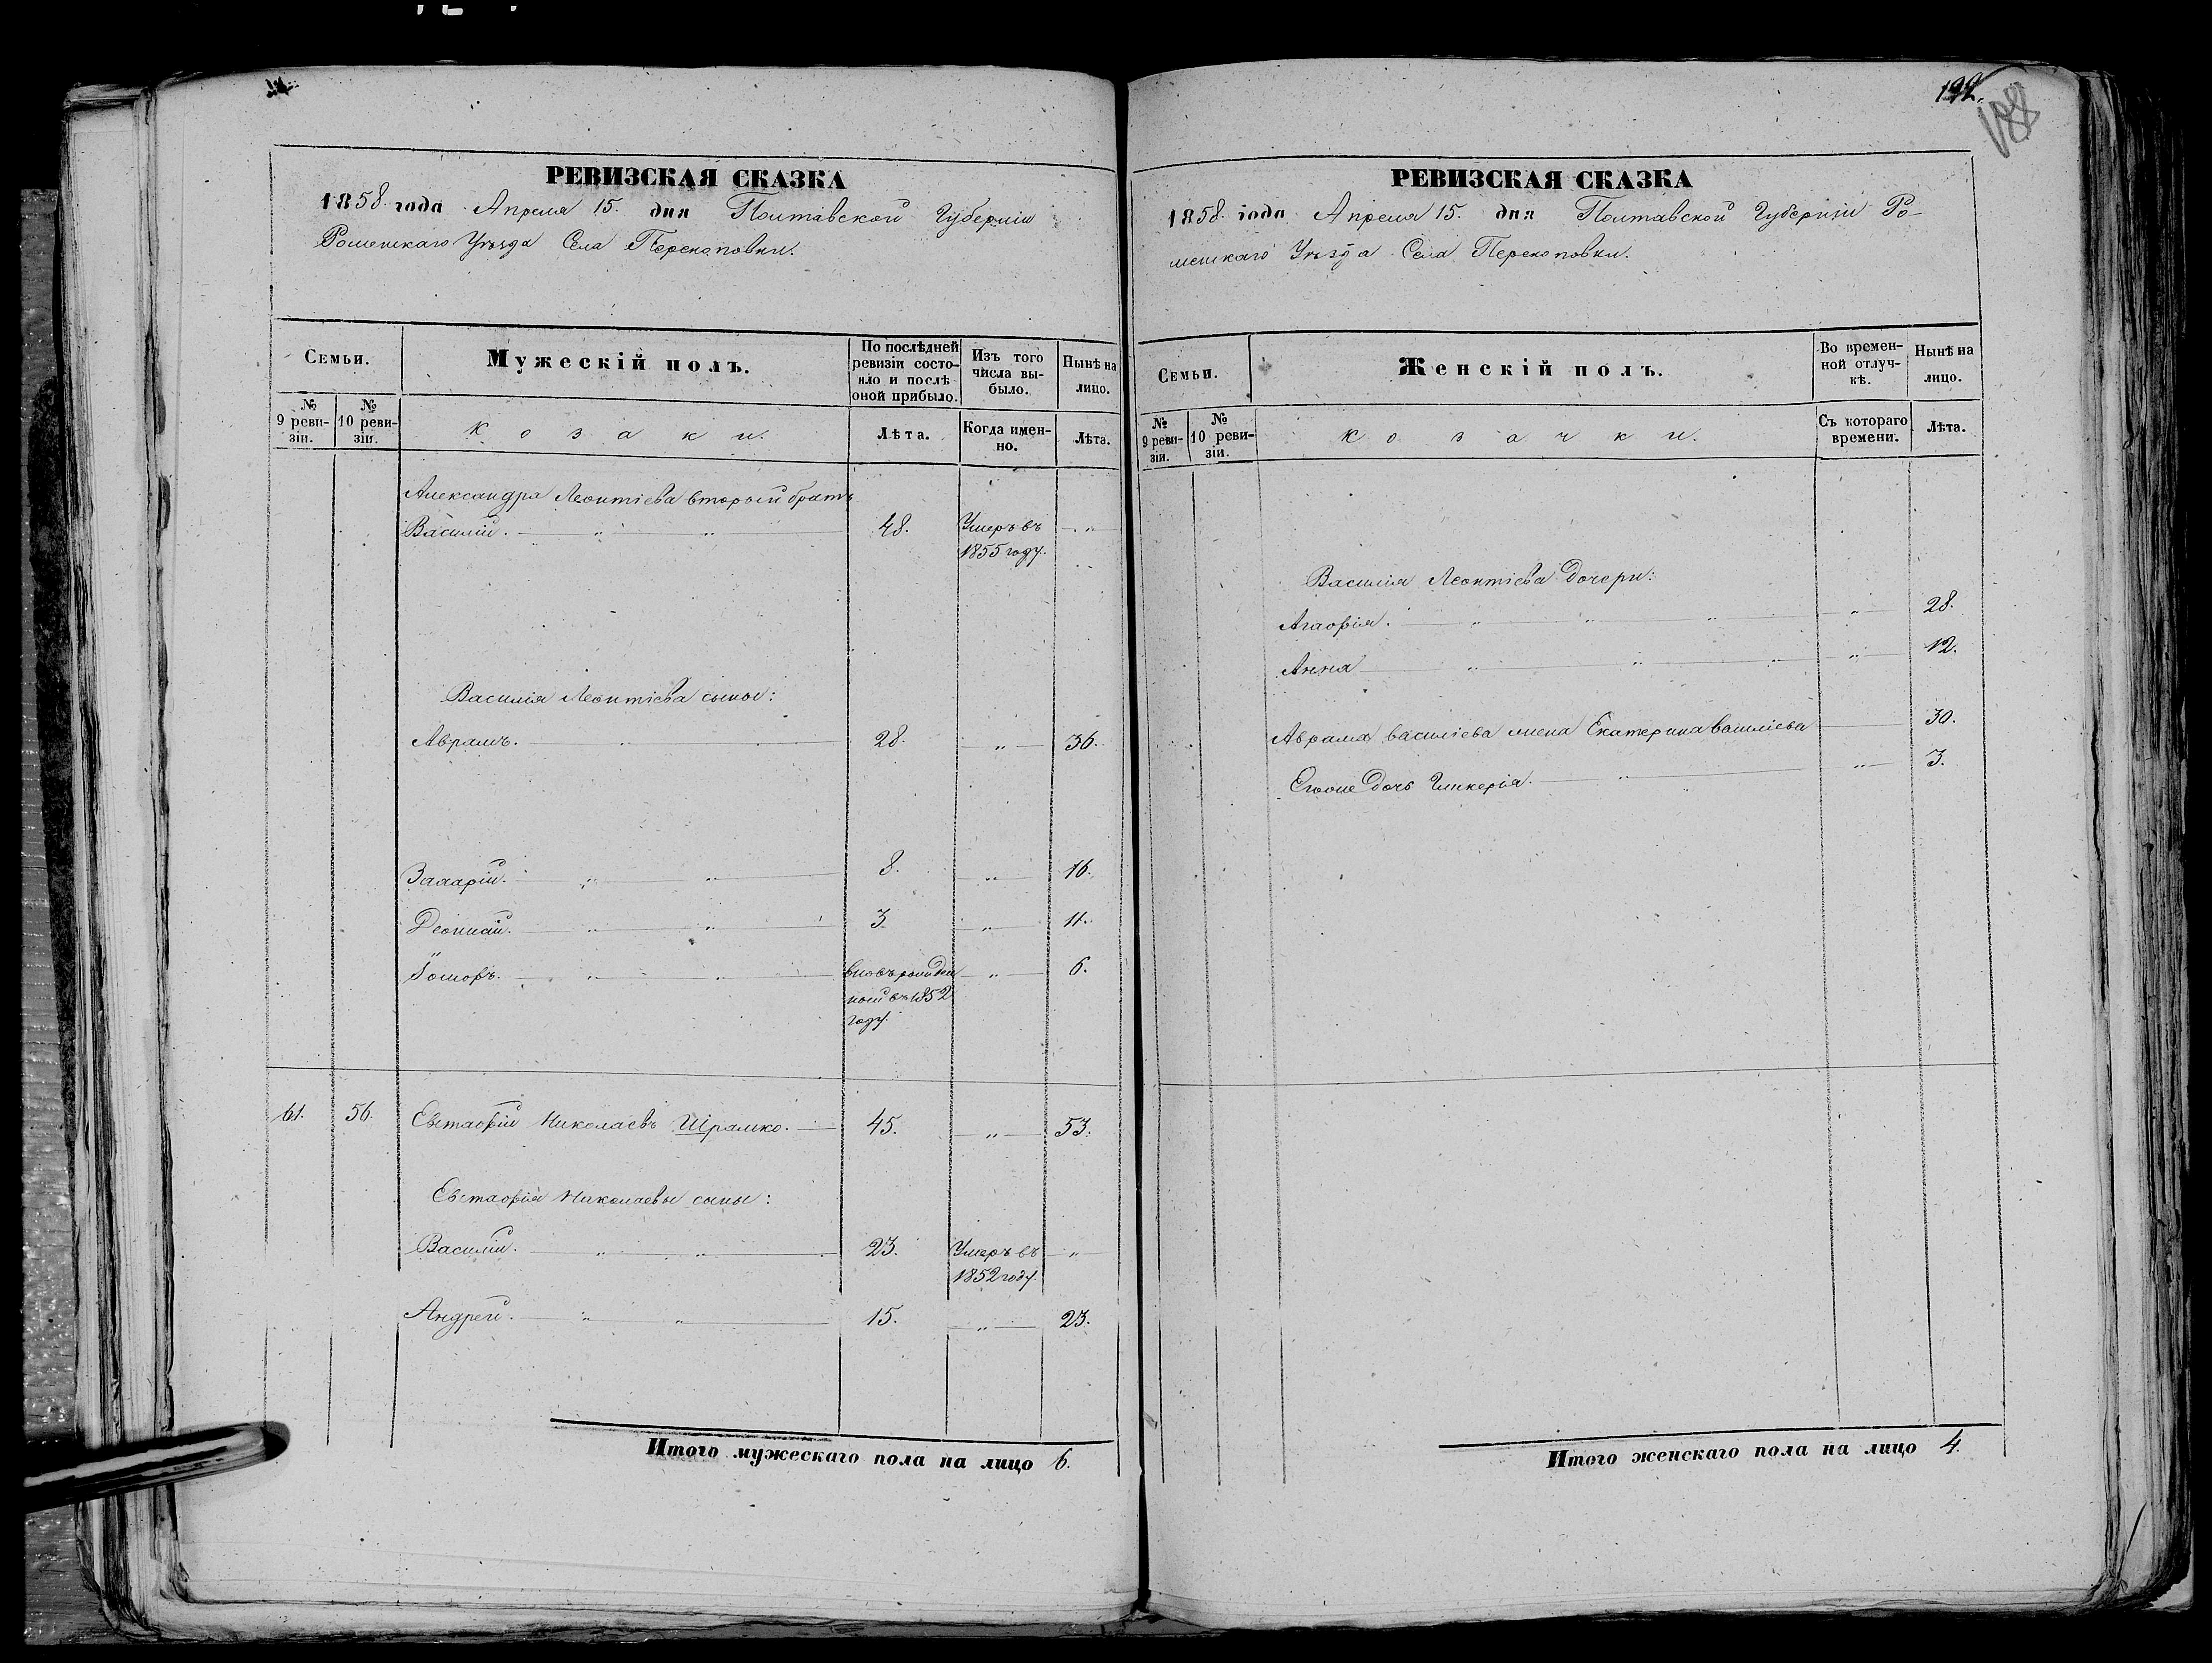 РЕВИЗСКАЯ СКАЗКА
1858 года Апреля 15. дня Полтавской Губерніи
Роменскаго Уѣзда Села Перекоповки.
Семьи.
Мужескій полъ.
По послѣдней ревизіи состояло и послѣ оной прибыло.
Изъ того числа выбыло.
Нынѣ на лицо.
№ 9 ревизіи.
№ 10 ревизіи.
Козаки.
Лѣта.
Когда именно.
Лѣта.
Александра Леонтіева вторый братъ
Василій. 48. Умеръ въ 1855 году. "
Василія Леонтіева сыны:
Аврамъ. 28. " 36.
Захарій. 8. " 16.
Деонисій. 3 " 11.
Іосифъ. вновь рожденный въ 1852 году. " 6.
61. 56. Евстафій Николаевъ Шрамко. 45. " 53.
Евстафія Николаевы сыны:
Василій. 23. Умеръ въ 1852 году. "
Андрей. 15. " 23.
Итого мужескаго пола на лицо 6.
188
РЕВИЗСКАЯ СКАЗКА
1858 года Апреля 15. дня Полтавской Губерніи Ро-
менскаго Уѣзда Села Перекоповки.
Семьи.
Женскій полъ.
Во временной отлучкѣ.
Нынѣ на лицо.
№ 9 ревизіи.
№ 10 ревизіи.
Козачки.
Съ котораго времени.
Лѣта.
Василія Леонтіева дочери:
Агафія. " 28.
Анна " 12.
Аврама Василіева жена Екатерина Василіева 30.
Егоже дочь Гликерія. " 3.
Итого женскаго пола на лицо 4.